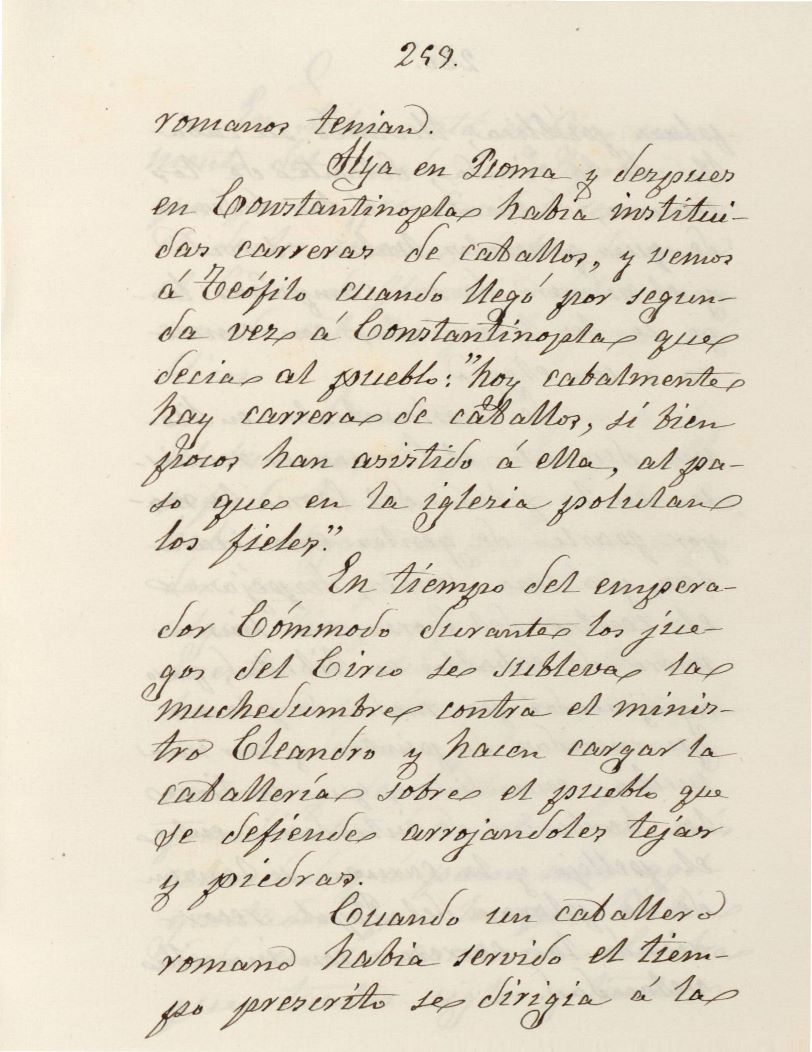 259.
romanos tenian.
Hya en Roma y despues
en Constantinopla habia institui-
das carreras de caballos, y vemos
á Teófilo cuando llegó por segun-
da vez á Constantinopla que
decia al pueblo: "hoy cabalmente
hay carrera de caballos, si bien
pocos han asistido á ella, al pa-
so que en la iglesia polulan
los fieles".
En tiempo del empera-
dor Cómmodo durante los jue-
gos del Circo se subleva la
muchedumbre contra el minis-
tro Cleandro y hacen cargar la
caballería sobre el pueblo que
se defiende arrojandoles tejas
y piedras.
Cuando un caballero
romano habia servido el tiem-
po prescrito se dirigia á la